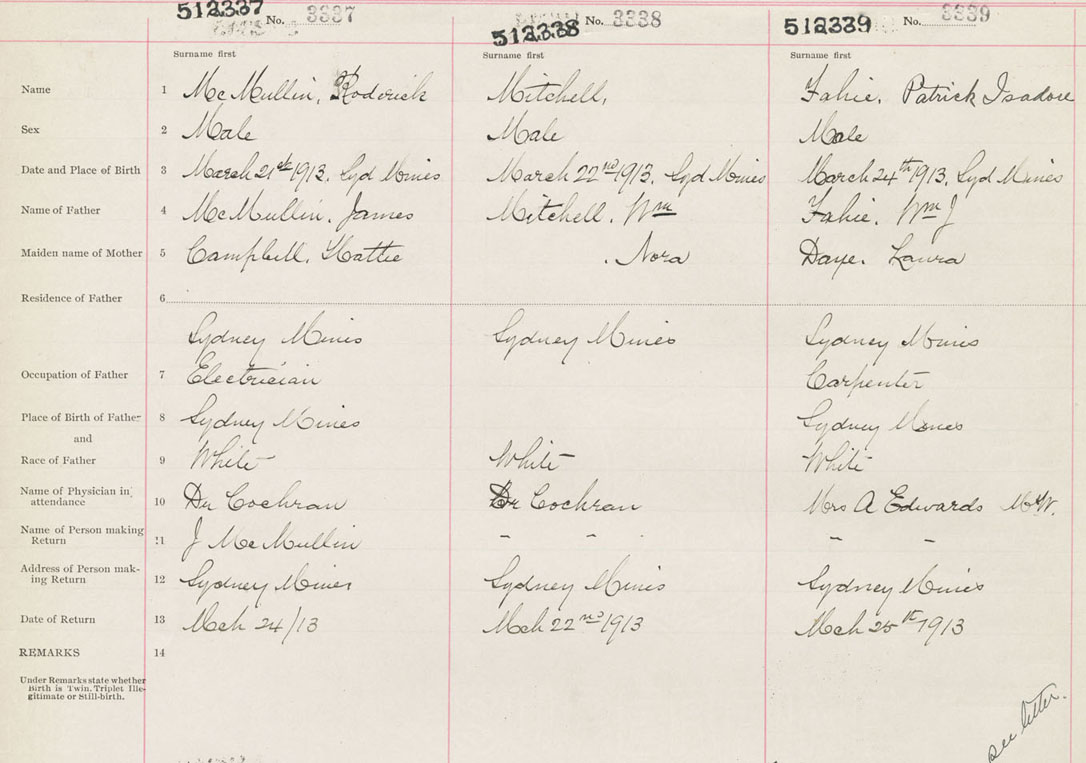 512337 No. 3337 512338 No. 3338 512339 No. 3339
Surname first Surname first Surname first
Name 1 McMullin, Roderick Mitchell, Fahie, Patrick Isadore
Sex 2 Male Male Male
Date and Place of Birth 3 March 21st 1913, Syd Mines March 22nd 1913, Syd Mines March 24th 1913, Syd Mines
Name of Father 4 McMullin, James Mitchell, Wm Fahie, Wm J
Maiden name of Mother 5 Campbell, Hattie . Nora Daye, Laura
Residence of Father 6
Sydney Mines Sydney Mines Sydney Mines
Occupation of Father 7 Electrician Carpenter
Place of Birth of Father 8 Sydney Mines Sydney Mines
and
Race of Father 9 White White White
Name of Physician in
attendance 10 Dr Cochran Dr Cochran Mrs A Edwards
Name of Person making
Return 11 J McMullin - - - -
Address of Person mak-
ing Return 12 Sydney Mines Sydney Mines Sydney Mines
Date of Return 13 Mch 24/13 Mch 22nd 1913 Mch 25th 1913
REMARKS 14
Under Remarks state whether
Birth is Twin. Triplet Ille-
gitimate or Still-birth.
see letter.